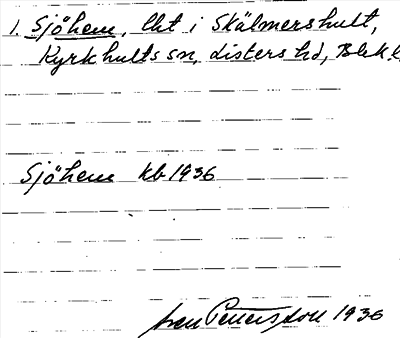 1. Sjöhem, lht i Skälmershult,
Kyrkhults sn, Listers hd, Blek.l
Sjöhem kb 1936
Sven Pettersson 1936